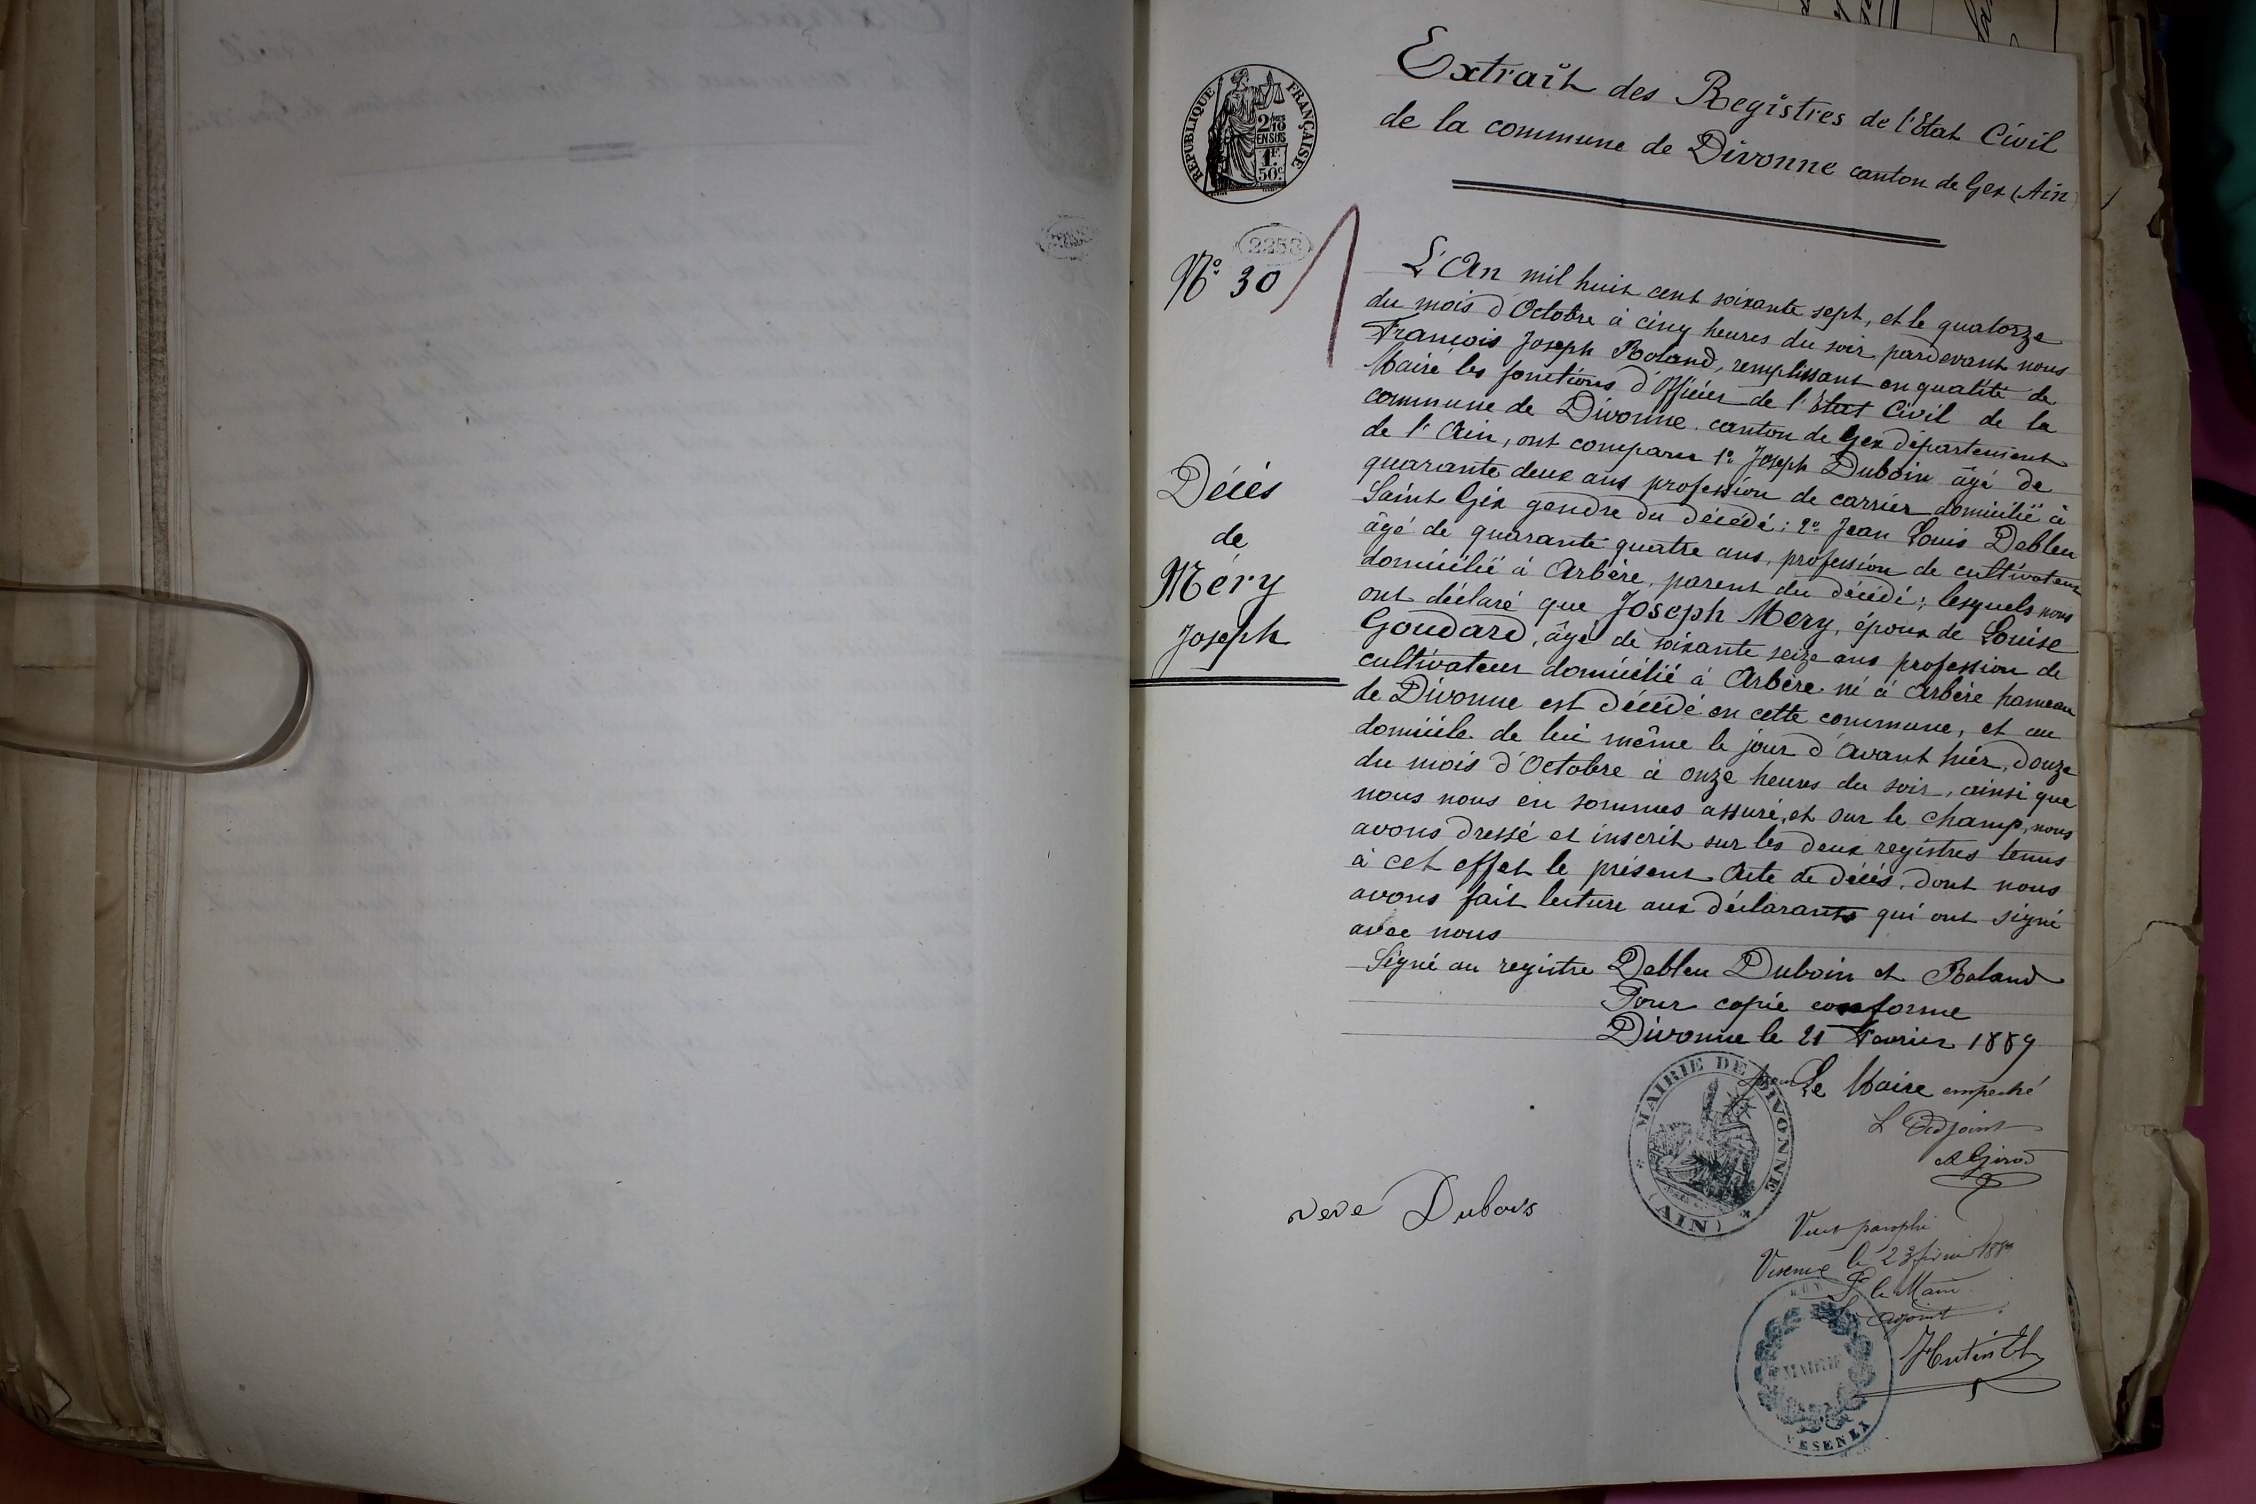 Extrait des Registres de l'Etat Civil
de la commune de Divonne canton de Gex (Ain)
RÉPUBLIQUE FRANÇAISE
2/10
EN SUS
1F
50c
2253
N° 30
L'An mil huit cent soixante sept, et le quatorze
du mois d'Octobre à cinq heures du soir, pardevant nous
François Joseph Roland, remplissant en qualité de
Maire les fonctions d'Officier de l'Etat Civil de la
commune de Divonne. canton de Gex département
de l'Ain, ont comparu 1° Joseph Duboin âgé de
quarante deux ans profession de carrier domicilié à
Saint Gix gendre du décédé; 2° Jean Louis Debleu
âgé de quarante quatre ans, profession de cultivateur
domicilié à Arbère, parent du décédé; lesquels nous
ont déclaré que Joseph Mery, époux de Louise
Goudard, âgé de soixante seize ans profession de
cultivateur domicilié à Arbère né à Arbère hameau
de Divonne est décédé en cette commune, et au
domicile de lui même le jour d'avant hier, douze
du mois d'Octobre à onze heures du soir, ainsi que
nous nous en sommes assuré, et sur le champ, nous
avons dressé et inscrit sur les deux registres tenus
à cet effet le présent Acte de décès. dont nous
avons fait lecture aux déclarants qui ont signé
avec nous
Décès
de
Méry
Joseph
Signé au registre Debleu Duboin et Roland
Pour copie conforme
Divonne le 21 Fevrier 1889
pour Le Maire empeché
L'Adjoint
A Girod
MAIRIE DE DIVONNE
(AIN)
veve Dubois
Vu et paraphé
le 23 février 1889
Pr le Maire
L'adjoint
MAIRIE